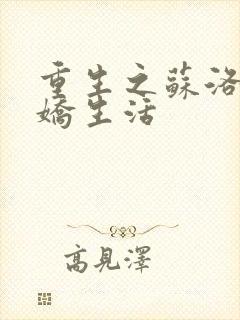 重生之蘇洛
嬌生活
高見澤